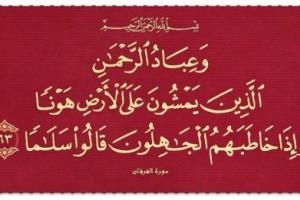 بِسْمِ اللَّهِ الرَّحْمَٰنِ الرَّحِيمِ
وَعِبَادُ الرَّحْمَٰنِ
الَّذِينَ يَمْشُونَ عَلَى الْأَرْضِ هَوْنًا
وَإِذَا خَاطَبَهُمُ الْجَاهِلُونَ قَالُوا سَلَامًا ٦٣
سورة الفرقان